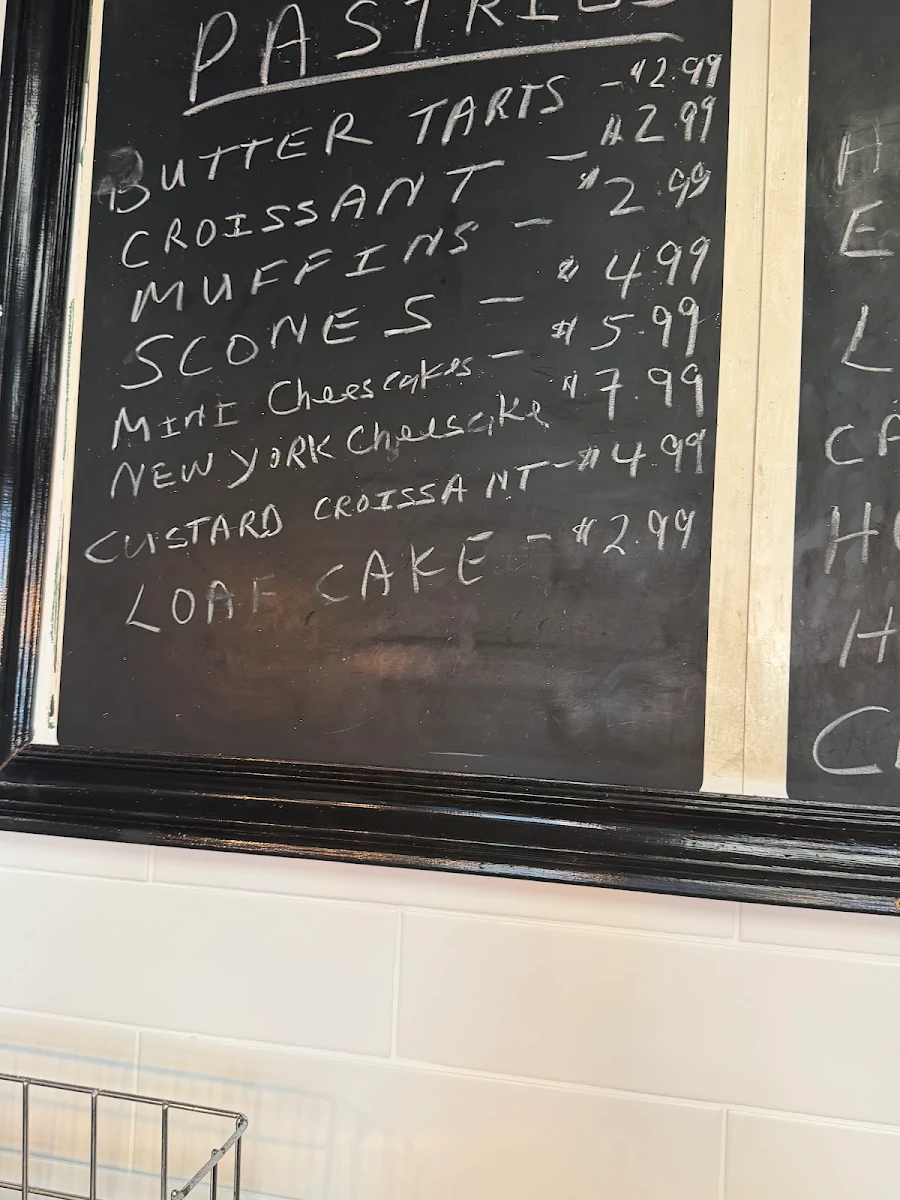 PASTRIES
BUTTER TARTS - $2.99
CROISSANT - $2.99
MUFFINS - $2.99
SCONES - $4.99
MINI Cheescakes - $5.99
NEW YORK Cheescake $7.99
CUSTARD CROISSANT - $4.99
LOAF CAKE - $2.99